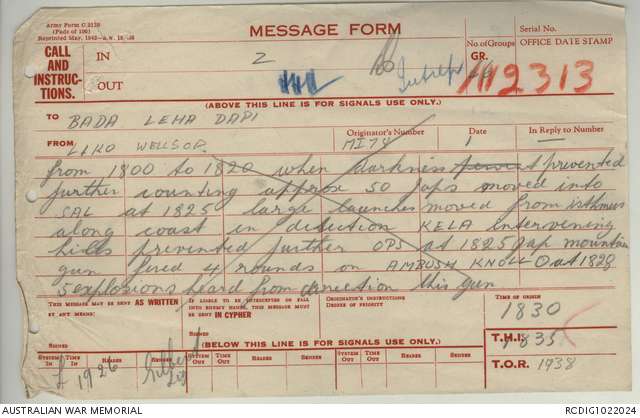 Army Form C 2128
(Pads of 100)
MESSAGE FORM
Serial No.
CALL AND INSTRUCTIONS.
IN
2
No. of Groups
GR.
OFFICE DATE STAMP
OUT
2313
(ABOVE THIS LINE IS FOR SIGNALS USE ONLY.)
TO BADA LEHA DAPI
Originator's Number
Date
In Reply to Number
FROM LIKO WELLSOP.
MI78
1
—
from 1800 to 1820 when darkness prevented
further counting approx 50 Japs moved into
SAL at 1825 large launches moved from isthmus
along coast in direction KELA intervening
hills prevented further OPS at 1825 Jap mountain
gun fired 4 rounds on AMBUSH KNOLL at 1828
5 explosions heard from direction this gun
THIS MESSAGE MAY BE SENT AS WRITTEN
BY ANY MEANS:
IF LIABLE TO BE INTERCEPTED OR FALL
INTO ENEMY HANDS, THIS MESSAGE MUST
BE SENT IN CYPHER
ORIGINATOR'S INSTRUCTIONS
DEGREE OF PRIORITY
TIME OF ORIGIN
1830
SIGNED
SIGNED
(BELOW THIS LINE IS FOR SIGNALS USE ONLY.)
T.H.I. 1835
SYSTEM IN
TIME IN
READER
SENDER
SYSTEM OUT
TIME OUT
READER
SENDER
SYSTEM OUT
TIME OUT
READER
SENDER
1926
T.O.R. 1938
AUSTRALIAN WAR MEMORIAL
RCDIG1022024